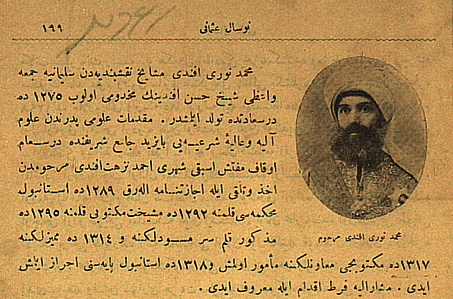 ١٩٩
نوسال عثمانی
محمد نوری افندی مشایخ نقشبندیه‌دن سلیمانیه جمعه
واعظی شیخ حسن افندینك مخدومی اولوب ١٢٧٥ ده
درسعادتده تولد ایلشدر . مقدمات علومی پدرندن علوم
آلیه وعالیهٔ شرعیه‌یی بایزید جامع شریفنده درسعام
اوقاف مفتش اسبقی شهری احمد نزهت افندی مرحومدن
اخذ وتلقی ایله اجازتنامه الەرق ١٢٨٩ده استانبول
محكمه‌سی قلمنه ١٢٩٢ده مشیختمكتوبی قلمنه ١٢٩٥ده
مذكور قلم سر مسودلكنه و ١٣١٤ ده ممیزلكنه
١٣١٧ده مكتوبجی معاونلكنه مأمور اولمش و١٣١٨ده استانبول پایه‌سنی احراز ایلمش
ایدی . مشارالیه فرط اقدام ایله معروف ایدی .
محمد نوری افندی مرحوم